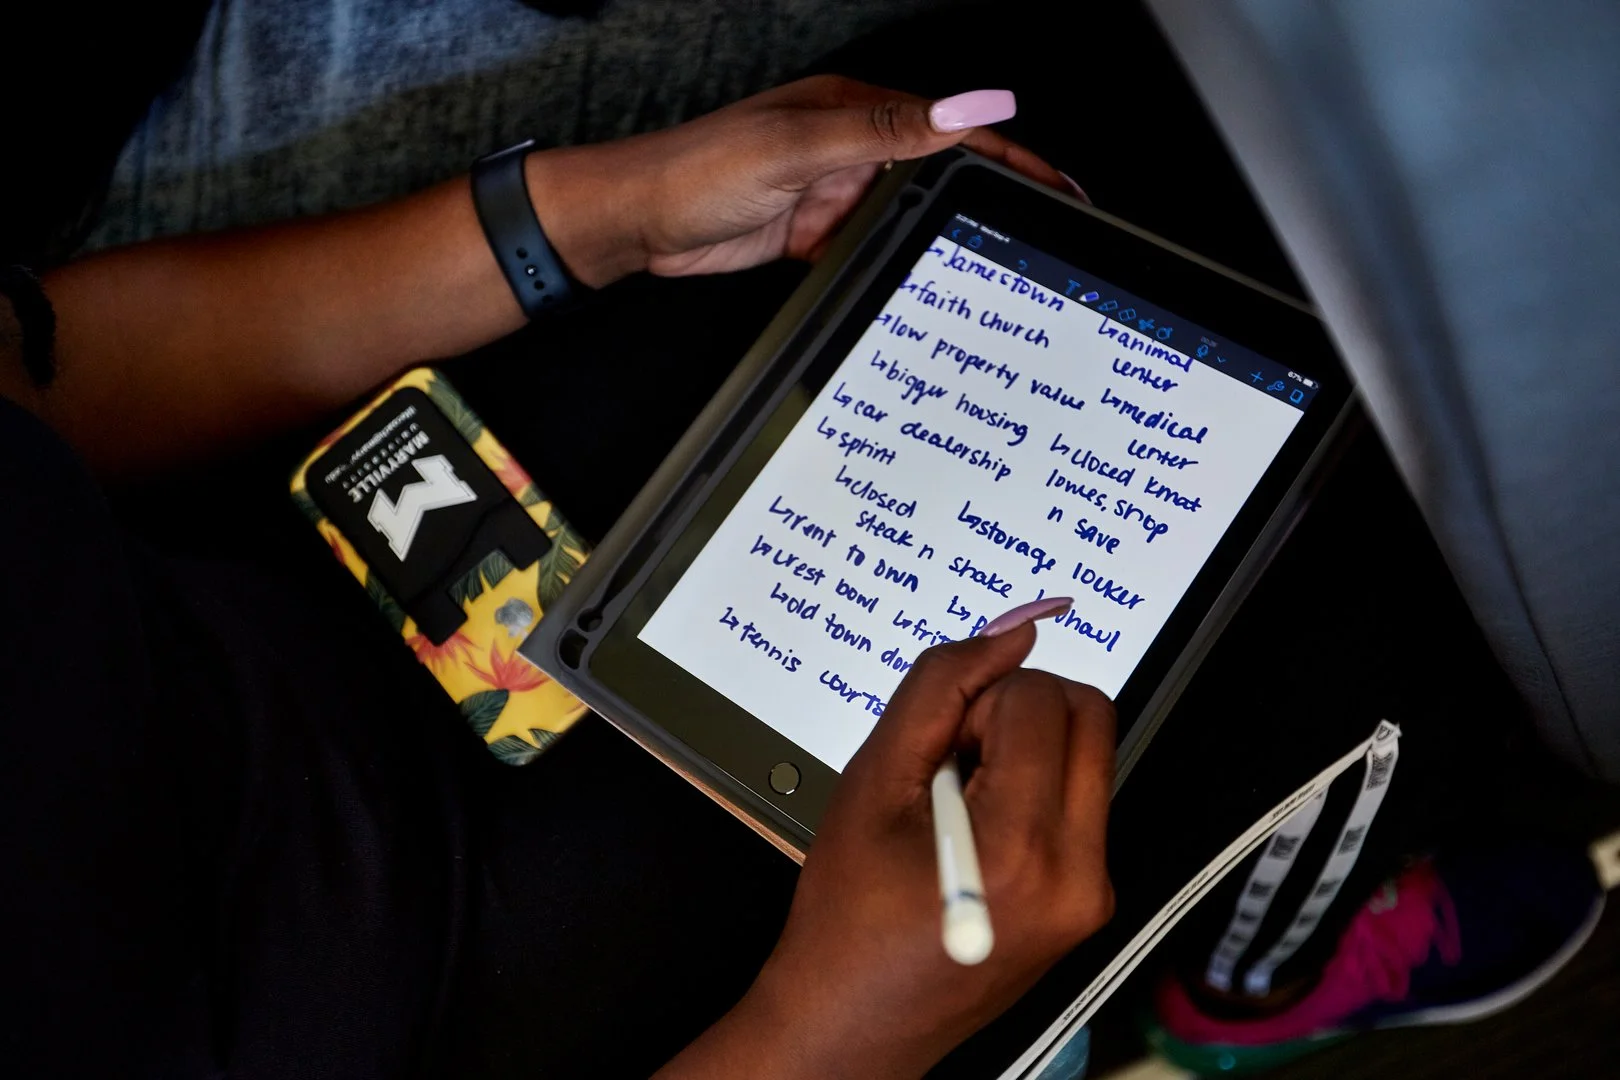 Jamestown
faith church
low property value
bigger housing
car dealership
sprint
closed
steak n shake
rent to own
crest bowl
old town
tennis courts
animal
center
medical
center
closed Kmat
lowes, shop
n save
storage locker
uhaul
MARYVILLE
UNIVERSITY
M
67%